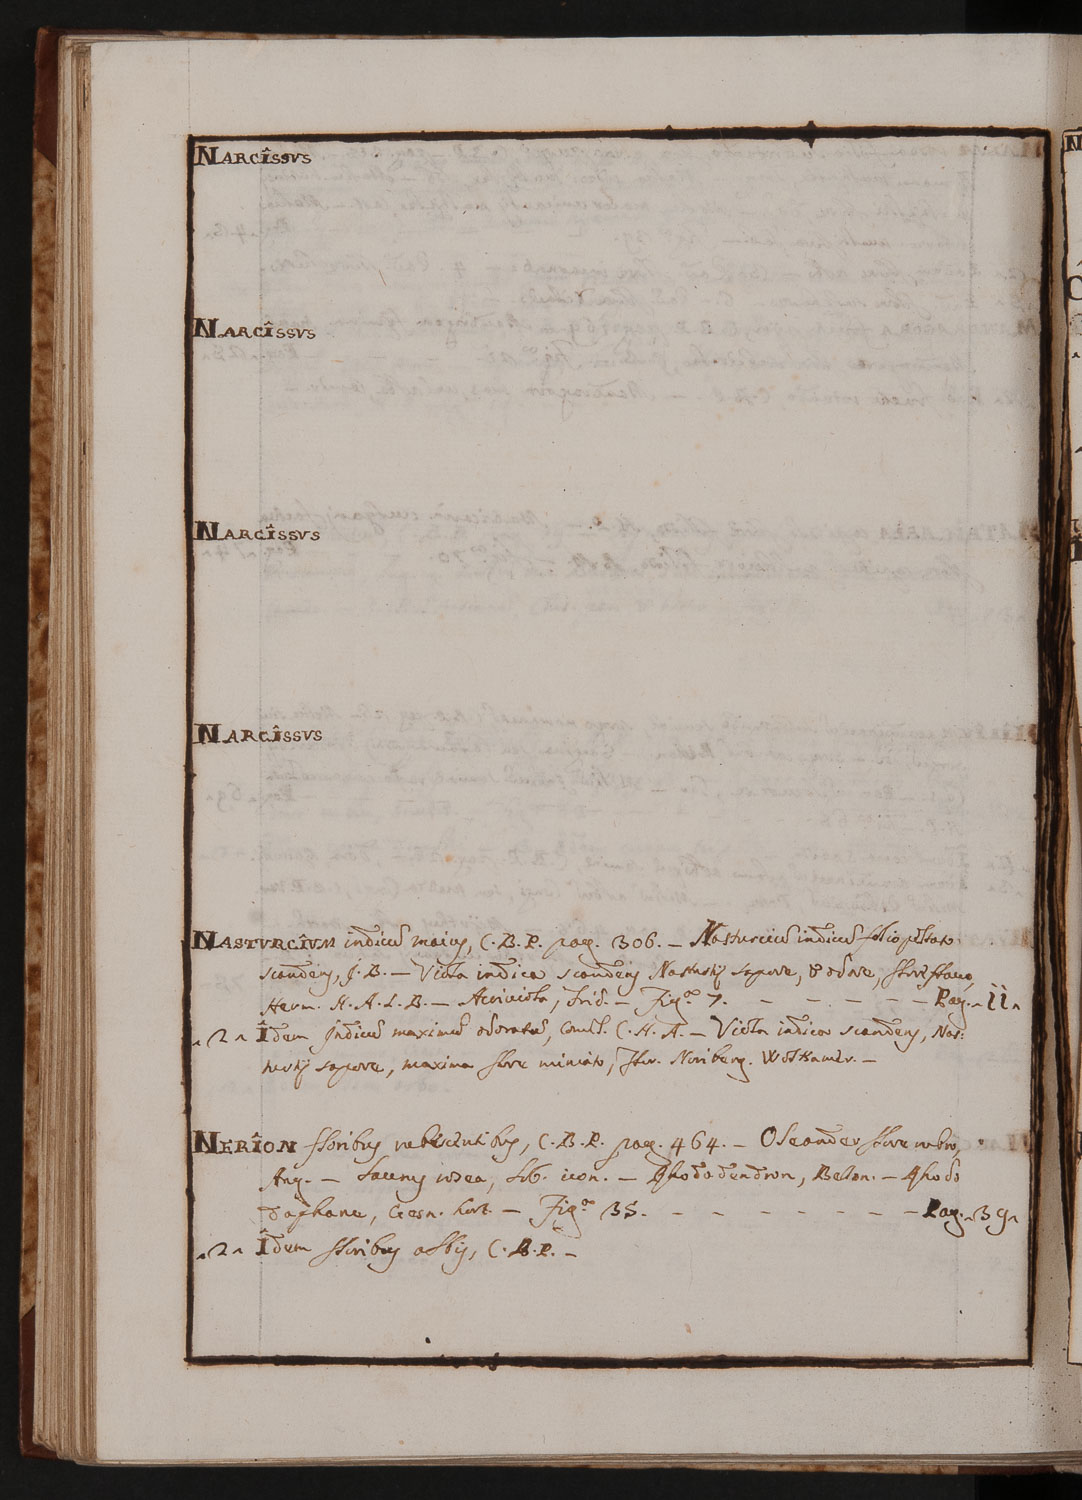 NARCÎSSVS
NARCÎSSVS
NARCÎSSVS
NARCÎSSVS
NASTVRCÎVM indicũ maius, C. B. P. pag. 306. – Nasturciũ indicũ folio peltato
scandens, J. B. – Viola indica scandens Nasturtÿ sapore, & odore, flore flavo,
Herm. H. A. L. B. – Acriviola, – Fig.ᵃ 7. – – – – – – Pag. 11
2 Îdem Indicũ maximũ odoratũ, C. H. A. – Viola indica scandens, Nas:
turtÿ sapore, maxima flore miniato, flor. Noriberg. Wolkamer. –
NERÎON floribus rubescentibus, C. B. P. pag. 464. – Oleander flore rubro,
Ang. – Laurus rosea, lob. icon. – Rhododendron, Bellon. – Rhodo
daphane, Gesn. hort. – Fig.ᵃ 35. – – – – – – – – Pag. 39
2 Îdem floribus albis, C. B. P. –